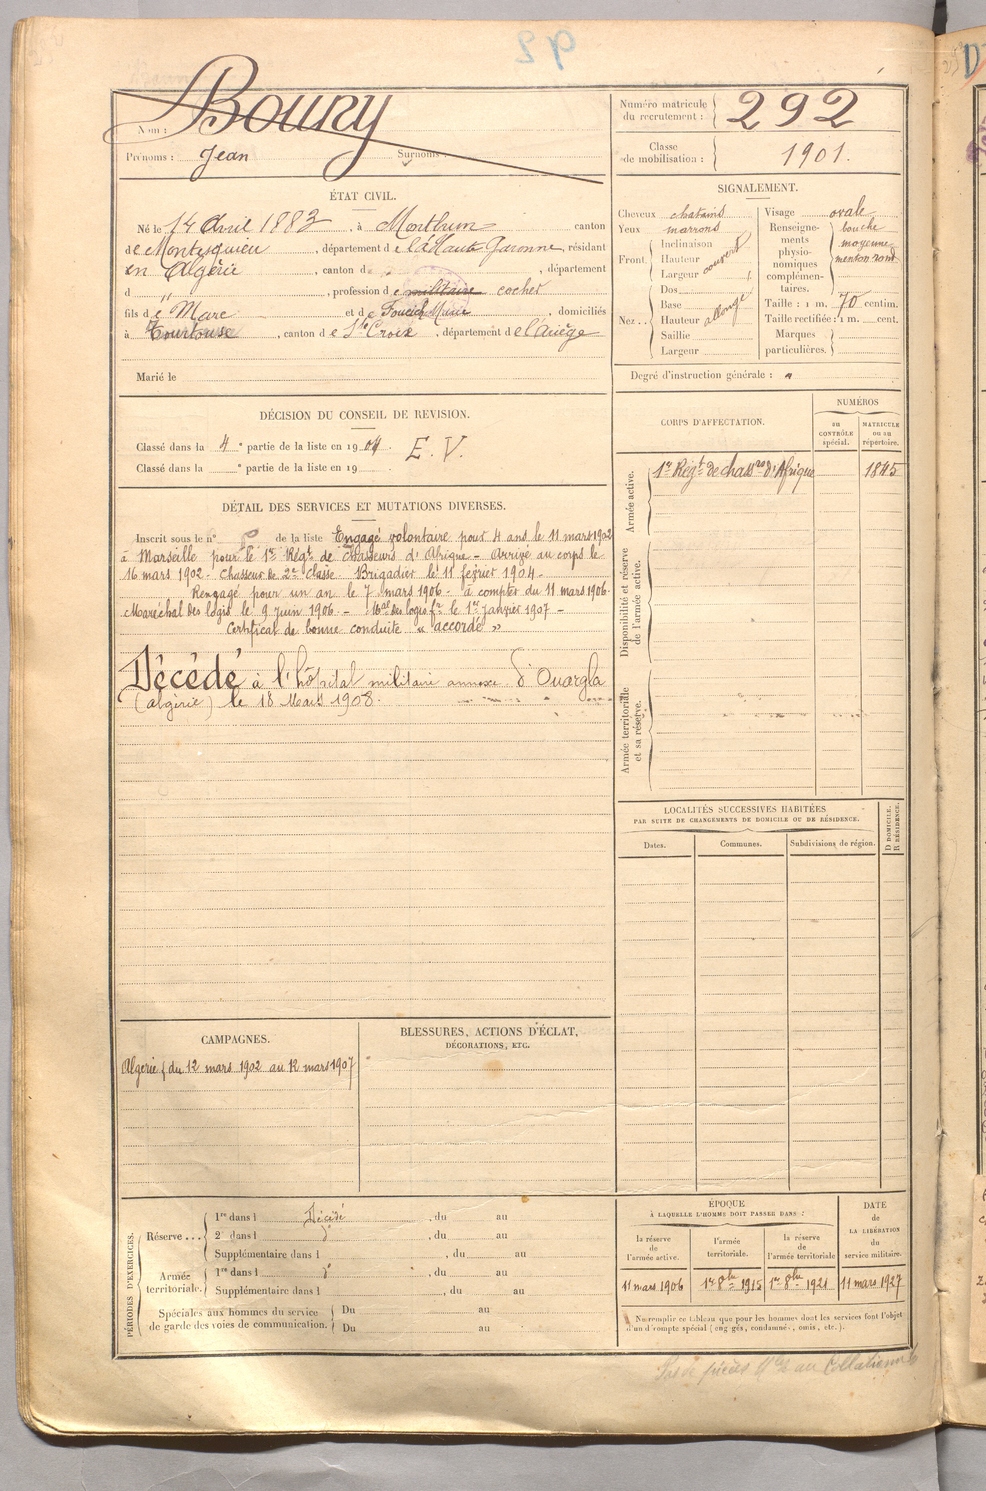 92
Nom : Boury
Prénoms : Jean Surnoms :
Numéro matricule du recrutement : 292
Classe de mobilisation : 1901.
ÉTAT CIVIL.
Né le 14 Avril 1883, à Montbrun canton
de Montesquieu, département de la Haute Garonne, résidant
en Algérie, canton d , département
d " , profession de militaire cocher
fils de Marc et de Foucich Marie, domiciliés
à Tourtouse, canton de Ste Croix, département de l'Ariège
Marié le
SIGNALEMENT.
Cheveux chatains
Yeux marrons
Front. Inclinaison
Hauteur couvert
Largeur
Nez... Dos
Base
Hauteur allongé
Saillie
Largeur
Visage ovale
Renseignements physionomiques complémentaires. bouche
moyenne
menton rond
Taille : 1 m. 70 centim.
Taille rectifiée : 1 m. cent.
Marques particulières.
Degré d'instruction générale :
DÉCISION DU CONSEIL DE REVISION.
Classé dans la 4e partie de la liste en 1904. E. V.
Classé dans la e partie de la liste en 19 .
CORPS D'AFFECTATION.
NUMÉROS
au CONTRÔLE spécial.
MATRICULE ou au répertoire.
Armée active.
1er Régt de chassrs d'Afrique 1845
Disponibilité et réserve de l'armée active.
Armée territoriale et sa réserve.
DÉTAIL DES SERVICES ET MUTATIONS DIVERSES.
Inscrit sous le n° de la liste Engagé volontaire pour 4 ans le 11 mars 1902
à Marseille pour le 1er Régt de Chasseurs d'Afrique - Arrivé au corps le
16 mars 1902 - Chasseur de 2e Classe. Brigadier le 11 février 1904 -
Rengagé pour un an le 7 mars 1906 - à compter du 11 mars 1906.
Maréchal des logis le 9 juin 1906 - Mal des logis fr le 1er janvier 1907 -
Certificat de bonne conduite « accordé »
Décédé à l'hôpital militaire annexe d'Ouargla
(algérie) le 18 Mars 1908.
LOCALITÉS SUCCESSIVES HABITÉES
PAR SUITE DE CHANGEMENTS DE DOMICILE OU DE RÉSIDENCE.
Dates. Communes. Subdivisions de région. D DOMICILE. R RÉSIDENCE.
CAMPAGNES.
Algérie { du 12 mars 1902 au 12 mars 1907
BLESSURES, ACTIONS D'ÉCLAT,
DÉCORATIONS, ETC.
PÉRIODES D'EXERCICES.
Réserve... 1re dans l Décédé , du au
2e dans l d° , du au
Supplémentaire dans l , du au
Armée territoriale. 1re dans l d° , du au
Supplémentaire dans l , du au
Spéciales aux hommes du service de garde des voies de communication. Du au
Du au
ÉPOQUE
À LAQUELLE L'HOMME DOIT PASSER DANS :
la réserve de l'armée active. l'armée territoriale. la réserve de l'armée territoriale
DATE de LA LIBÉRATION du service militaire.
11 mars 1906 1er 8bre 1915 1er 8bre 1921 11 mars 1927